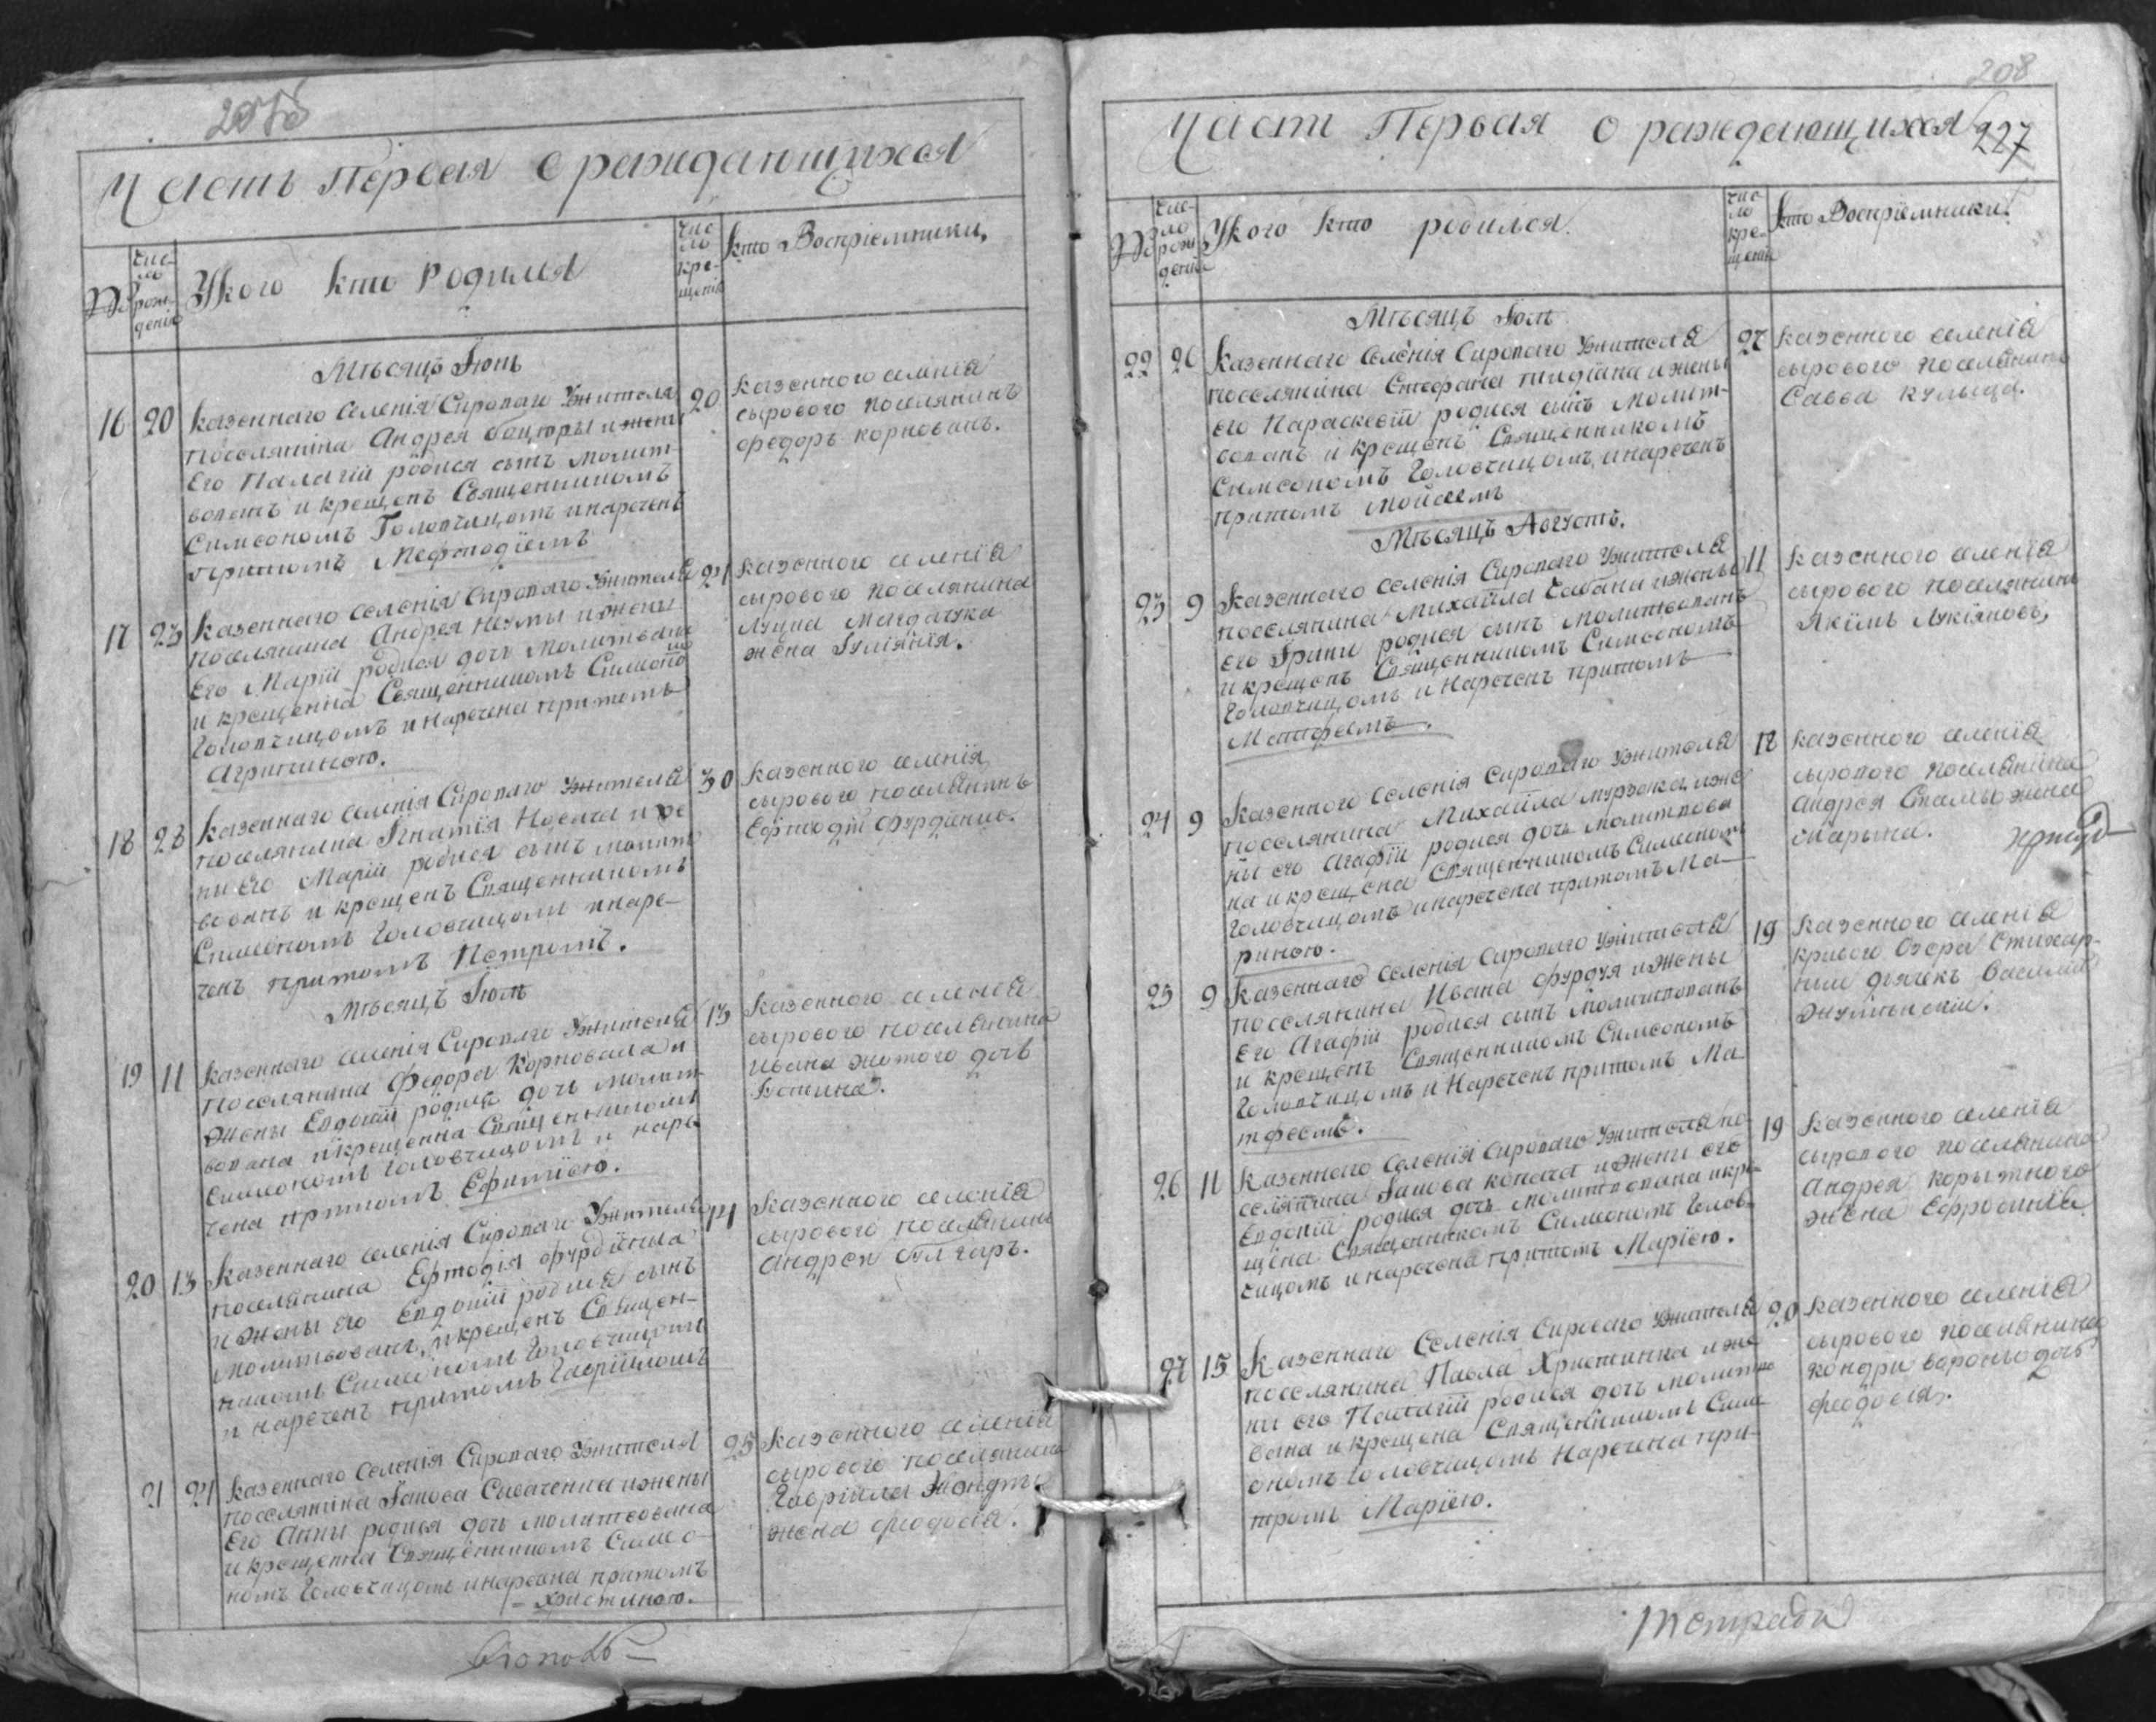 Часть Первая о раждающихся
№
число рождения
Укого кто родился
число крещенія
кто Воспріемники,
Мѣсяцъ Іюнь
16 20 казеннаго селенія Сироваго Жителя
поселянина Андрея и жены
его Палагіи родися сынъ молит-
вованъ и крещенъ Священникомъ
Симеономъ Головчицомъ инареченъ
притомъ Мефтодіемъ
20 казенного селенія
сырового поселянинъ
федоръ корнованъ.
17 23 казеннаго селенія Сироваго Жителя
поселянина Андрея Неумы и жены
его Маріи родися дочь молитвована
и крещенна Священникомъ Симеоно
Головчицомъ инаречена притомъ
Агрипиною.
21 казенного селенія
сырового поселянина
Луциа
жена Іуліянія.
18 28 казеннаго селенія Сироваго Жителя
поселянина Игнатія и же
ни его Маріи родися сынъ молит
вованъ и крещенъ Священникомъ
Симеономъ Головчицомъ инаре-
ченъ притомъ Петромъ.
30 казенного селенія
сырового поселянинъ
Ефтодій Фурдиенъ.
Мѣсяцъ Іюль
19 11 казеннаго селенія Сироваго Жителя
поселянина Федора Корнована и
жены Евдокіи родися дочь молит-
вована икрещенна Священникомъ
Симеономъ Головчицомъ и наре
чена притомъ Ефиміею.
13 казенного селенія
сырового поселянина
Ивана жотого дочъ
20 13 казеннаго селенія Сироваго Жителя
поселянина Ефтодія фурдіена
и жены его Евдокіи родися сынъ
молитвованъ, икрещенъ Священ-
никомъ Симеономъ Головчицомъ
и нареченъ притомъ Гавріиломъ
14 казенного селенія
сырового поселянинъ
Андрей Булгаръ.
21 21 казеннаго селенія Сироваго Жителя
поселянина Іакова Сиваченка ижены
его Анны родися дочь молитвована
и крещенна Священникомъ Симео-
номъ Головчицомъ инаречена притомъ
Христиною.
25 казенного селенія
сырового поселянина
Гавріила
жена феодосія.
208
227
Части Первая о раждающихся
№
число рожденія
Укого кто родился.
число крещенія
кто Воспріемники
Мѣсяцъ Іюль
22 26 казеннаго селенія Сироваго Жителя
поселянина Стефана и жены
его Параскевіи родися сынъ молит-
вованъ и крещенъ Священникомъ
Симеономъ Головчицомъ, инареченъ
притомъ Мойсеемъ
27 казенного селенія
сырового поселянинъ
Савва кульца.
Мѣсяцъ Августъ.
23 9 казеннаго селенія Сироваго Жителя
поселянина Михаила Чабана ижены
его Ирини родися сынъ молитвованъ
и крещенъ Священникомъ Симеономъ
Головчицомъ и нареченъ притомъ
Матфеемъ.
11 казенного селенія
сырового поселянинъ
Якимъ Лукіяновъ,
24 9 казеннаго селенія Сироваго Жителя
поселянина Михаила мурзака, иже
ны его Агафіи родися дочь молитвова
на икрещена Священникомъ Симеоном
Головчицомъ инаречена притомъ Ма-
риною.
12 казенного селенія
сырового поселянина
Андрея Стамы жина
Марына.
25 9 казеннаго селенія Сироваго Жителя
поселянина Ивана фурдуя ижены
его Агафіи родися сынъ молитвованъ
и крещенъ Священникомъ Симеономъ
Головчицомъ и нареченъ притомъ Ма
тфеемъ.
19 казенного селенія
кривого Озера Стихар-
ний дячекъ Василій
26 11 казеннаго селенія Сироваго Жителя по-
селянина Іакова копача ижени его
Евдокіи родися дочь молитвована икре-
щена Священникомъ Симеономъ Голов-
чицомъ инаречена притомъ Маріею.
19 казенного селенія
сырового поселянина
Андрея
жена Ефросинія
27 15 казеннаго селенія Сироваго Жителя
поселянина Павла Христинка иже
ни его Палагіи родися дочь молитво
вана и крещена Священникомъ Симе
ономъ Головчицомъ наречена при-
томъ Маріею.
20 казенного селенія
сырового поселянина
кондри вароны дочъ
феодосія.